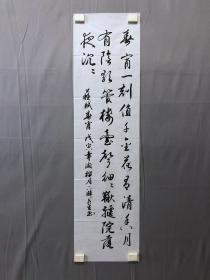 春宵一刻值千金花有清香月
有陰歌管樓臺聲細〻鞦韆院落
夜沉〻 蘇軾春宵 戊寅年